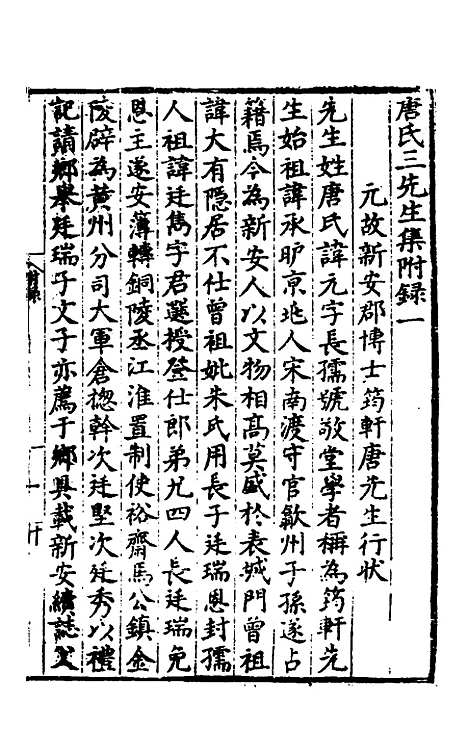 唐氏三先生集附録一
元故新安郡博士筠軒唐先生行狀
先生姓唐氏諱元字長孺號敬堂學者稱為筠軒先
生始祖諱承旷京兆人宋南渡守官歙州子孫遂占
籍焉今為新安人以文物相髙莫盛於表城門曾祖
諱大有隱居不仕曾祖妣朱氏用長子廷瑞恩封孺
人祖諱廷雋字君選授登仕郎弟兄四人長廷瑞免
恩主遂安薄轉銅陵丞江淮置制使裕齋馬公鎮金
陵辟為黄州分司大軍倉揔幹次廷堅次廷秀以禮
記請鄉舉廷瑞子文子亦薦于鄉具載新安續誌父
附録